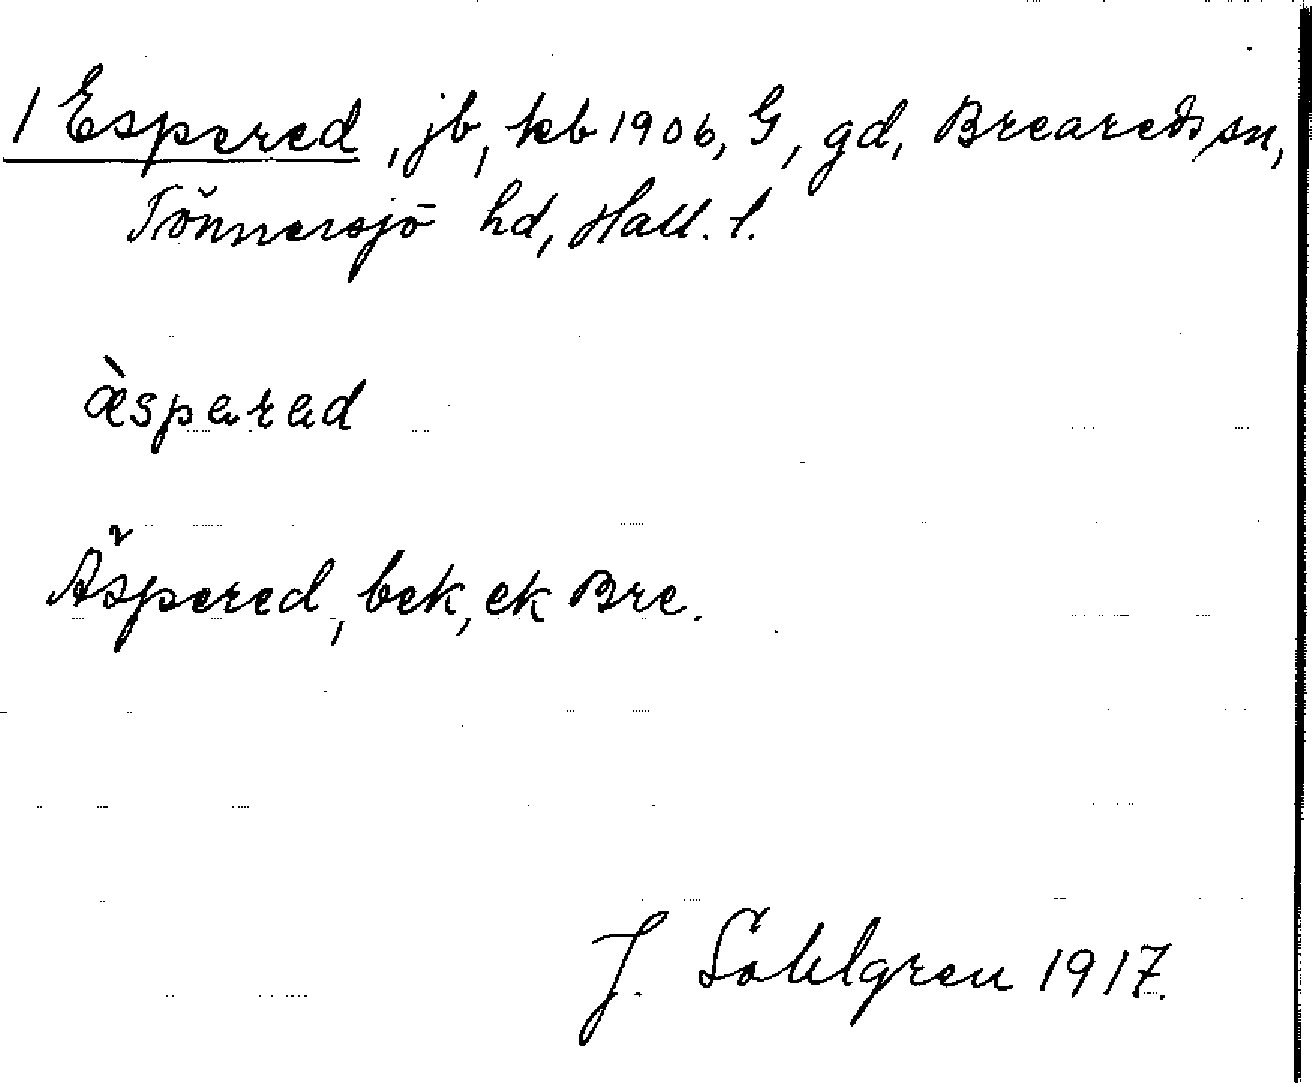 1 Espered, jb, kb 1906, G, gd, Breareds sn,
Tönnersjö hd, Hall. l.
æ̀sparad
Äspered, bek, ek Bre.
J. Sahlgren 1917.